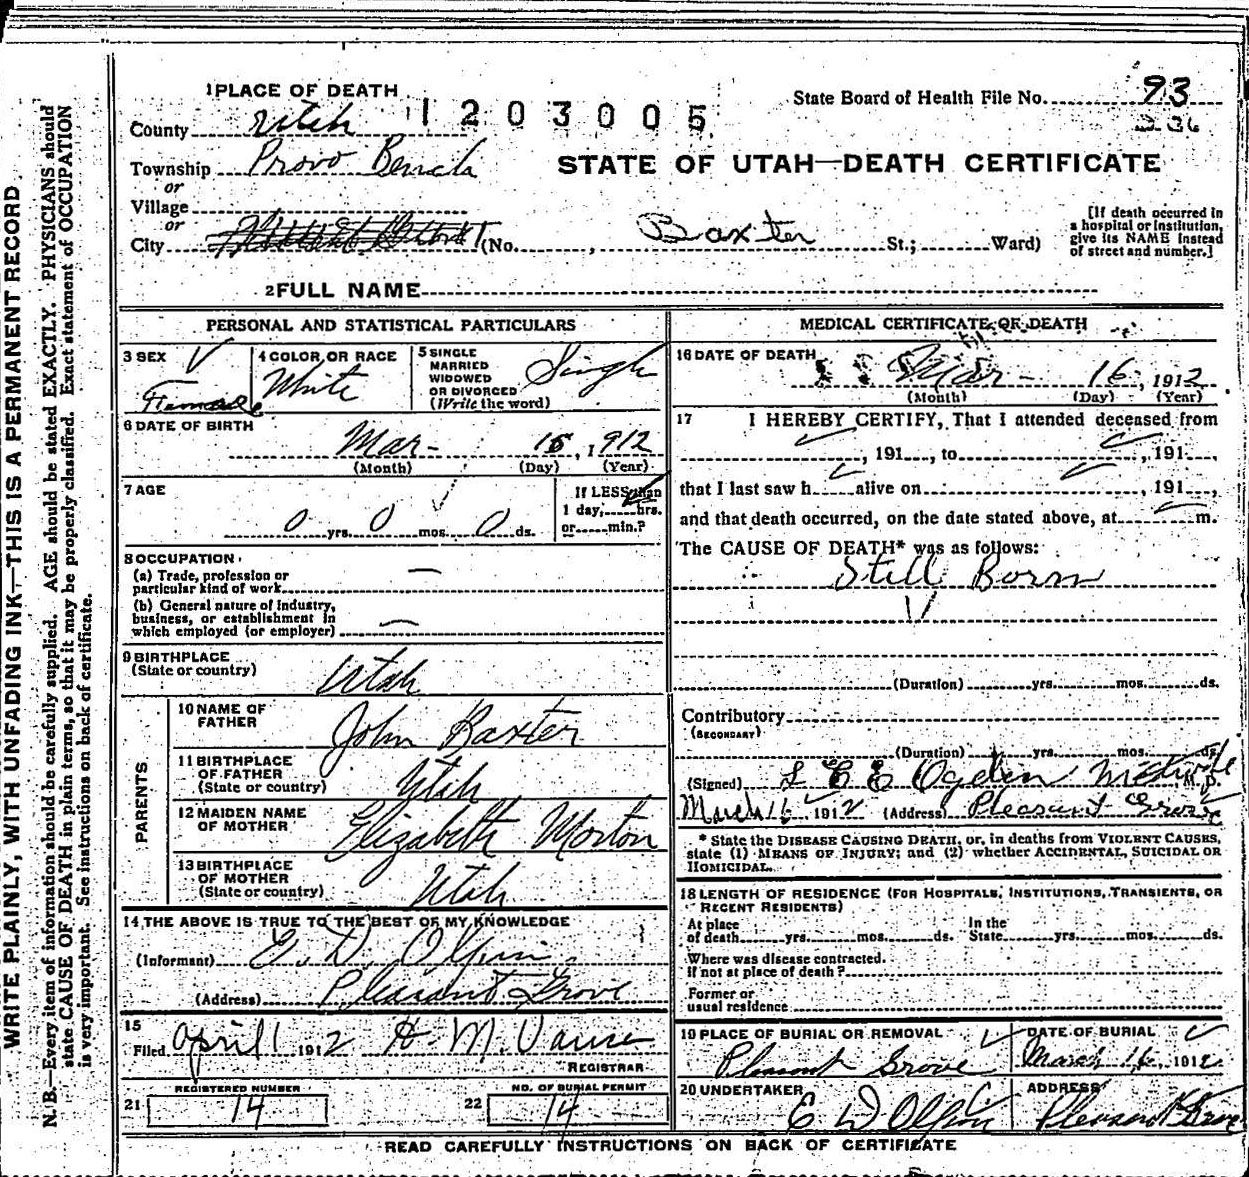 WRITE PLAINLY, WITH UNFADING INK—THIS IS A PERMANENT RECORD
N. B.—Every item of information should be carefully supplied. AGE should be stated EXACTLY. PHYSICIANS should
state CAUSE OF DEATH in plain terms, so that it may be properly classified. Exact statement of OCCUPATION
is very important. See instructions on back of certificate.
1 PLACE OF DEATH
1203005
State Board of Health File No. 93
County Utah
Township Provo Bench
STATE OF UTAH—DEATH CERTIFICATE
or
Village
or
City (No. , Baxter St.; Ward)
[If death occurred in
a hospital or institution,
give its NAME instead
of street and number.]
2 FULL NAME
PERSONAL AND STATISTICAL PARTICULARS
3 SEX Female
4 COLOR OR RACE White
5 SINGLE
MARRIED
WIDOWED
OR DIVORCED
(Write the word) Single
6 DATE OF BIRTH
Mar- 16, 1912
(Month) (Day) (Year)
7 AGE
0 yrs. 0 mos. 0 ds.
If LESS than
1 day, hrs.
or min.?
8 OCCUPATION
(a) Trade, profession or
particular kind of work —
(b) General nature of industry,
business, or establishment in
which employed (or employer) —
9 BIRTHPLACE
(State or country) Utah
PARENTS
10 NAME OF
FATHER John Baxter
11 BIRTHPLACE
OF FATHER
(State or country) Utah
12 MAIDEN NAME
OF MOTHER Elizabeth Morton
13 BIRTHPLACE
OF MOTHER
(State or country) Utah
14 THE ABOVE IS TRUE TO THE BEST OF MY KNOWLEDGE
(Informant) E. D. Olpin.
(Address) Pleasant Grove
15
Filed April 1 1912 H. M. 
REGISTRAR
REGISTERED NUMBER
21 14
NO. OF BURIAL PERMIT
22 14
MEDICAL CERTIFICATE OF DEATH
16 DATE OF DEATH
Mar- 16, 1912
(Month) (Day) (Year)
17 I HEREBY CERTIFY, That I attended deceased from
, 191 , to , 191 ,
that I last saw h alive on , 191 ,
and that death occurred, on the date stated above, at m.
The CAUSE OF DEATH* was as follows:
Still Born
(Duration) yrs. mos. ds.
Contributory
(SECONDARY)
(Duration) yrs. mos. ds.
(Signed) E Ogden M.D.
March 16 1912 (Address) Pleasant Grove
* State the DISEASE CAUSING DEATH, or, in deaths from VIOLENT CAUSES,
state (1) MEANS OF INJURY; and (2) whether ACCIDENTAL, SUICIDAL OR
HOMICIDAL.
18 LENGTH OF RESIDENCE (FOR HOSPITALS, INSTITUTIONS, TRANSIENTS, OR
RECENT RESIDENTS)
At place
of death yrs. mos. ds.
In the
State yrs. mos. ds.
Where was disease contracted.
if not at place of death?
Former or
usual residence
19 PLACE OF BURIAL OR REMOVAL
Pleasant Grove
DATE OF BURIAL
March 16, 1912
20 UNDERTAKER
E D Olpin
ADDRESS
Pleasant Grove
READ CAREFULLY INSTRUCTIONS ON BACK OF CERTIFICATE